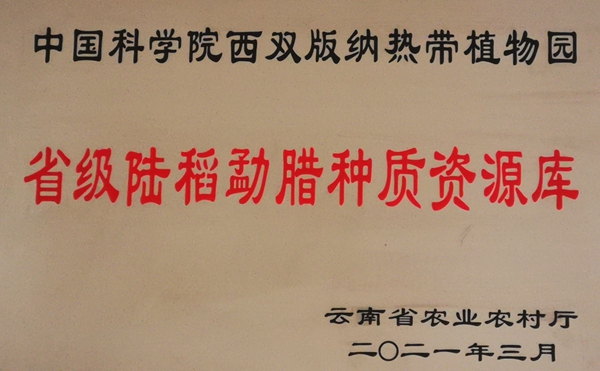 中国科学院西双版纳热带植物园
省级陆稻勐腊种质资源库
云南省农业农村厅
二〇二一年三月